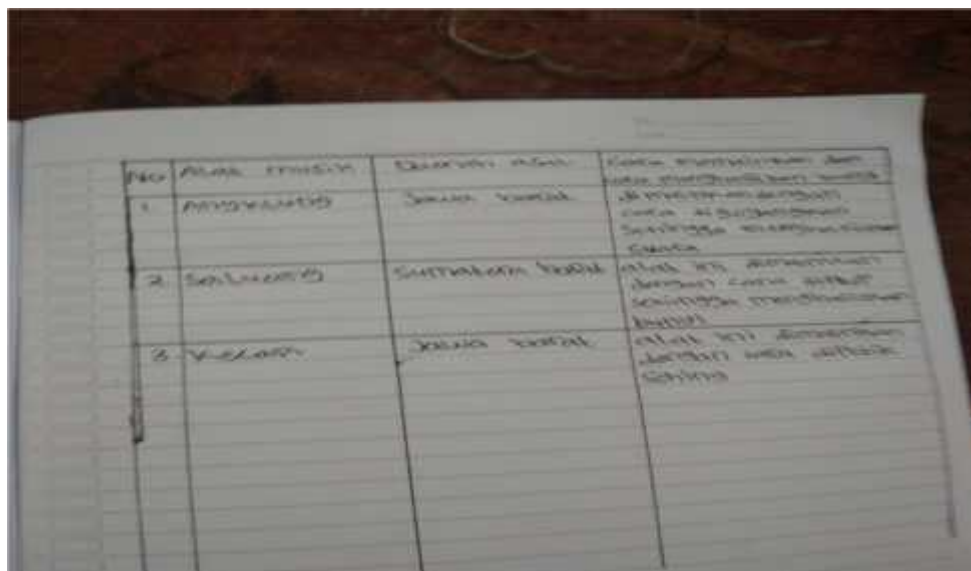 No Alat musik Daerah asal cara memainkan dan
cara menghasilkan bunyi
1. Angklung Jawa barat dimainkan dengan
cara digoyangkan
sehingga menghasilkan
suara
2 Saluang Sumatera barat alat ini dimainkan
dengan cara ditiup
sehingga menghasilkan
bunyi
3 Kecapi Jawa barat alat ini dimainkan
dengan cara dipetik
sehing